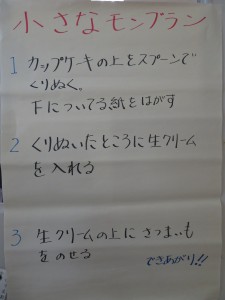 小さなモンブラン
1 カップケーキの上をスプーンで
くりぬく。
下についてる紙をはがす
2 くりぬいたところに生クリーム
を入れる
3 生クリームの上にさつまいも
をのせる
できあがり!!